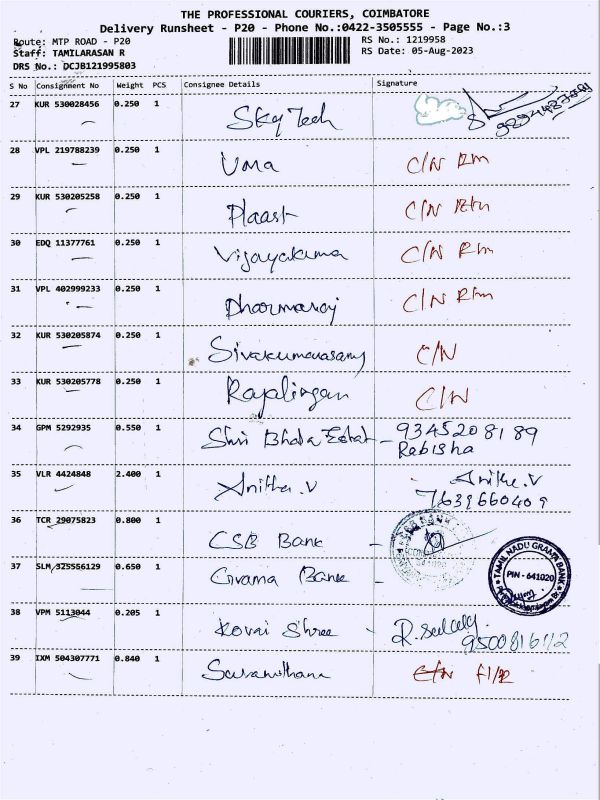 THE PROFESSIONAL COURIERS, COIMBATORE
Delivery Runsheet - P20 - Phone No.:0422-3505555 - Page No.:3
Route: MTP ROAD - P20
Staff: TAMILARASAN R
DRS No.: DCJB121995803
RS No.: 1219958
RS Date: 05-Aug-2023
S No Consignment No Weight PCS Consignee Details Signature
27 KUR 530028456 0.250 1 Sky Tech
28 VPL 219788239 0.250 1 Uma C/N Rtn
29 KUR 530205258 0.250 1 Plaast C/N Rtn
30 EDQ 11377761 0.250 1 Vijayakuma C/N Rtn
31 VPL 402999233 0.250 1 Dharmaraj C/N Rtn
32 KUR 530205874 0.250 1 Sivakumarasamy C/N
33 KUR 530205778 0.250 1 Rajalingan C/N
34 GPM 5292935 0.550 1 Shri Bhala - 9345208189
Rabisha
35 VLR 4424848 2.400 1 Anitha.V Anitha.V
7639660409
36 TCR 29075823 0.800 1 CSB Bank -
37 SLM 325556129 0.650 1 Grama Bank -
TAMIL NADU GRAMA BANK
PIN - 641020
38 VPM 5113044 0.205 1 Kovai Shree - R.
9500816112
39 IXM 504307771 0.840 1 C/N